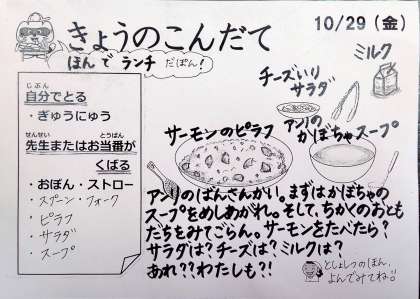 きょうのこんだて
10/29（金）
ほんで ランチ だぽん！
じぶん
自分でとる
・ぎゅうにゅう
せんせい とうばん
先生またはお当番が
くばる
・おぼん・ストロー
・スプーン・フォーク
・ピラフ
・サラダ
・スープ
ミルク
チーズいり
サラダ
アンリの
かぼちゃスープ
サーモンのピラフ
アンリのばんさんかい。まずはかぼちゃの
スープをめしあがれ。そして、ちかくのおとも
だちをみてごらん。サーモンをたべたら？
サラダは？チーズは？ミルクは？
あれ？？わたしも？！
としょしつのほん、
よんでみてね！！